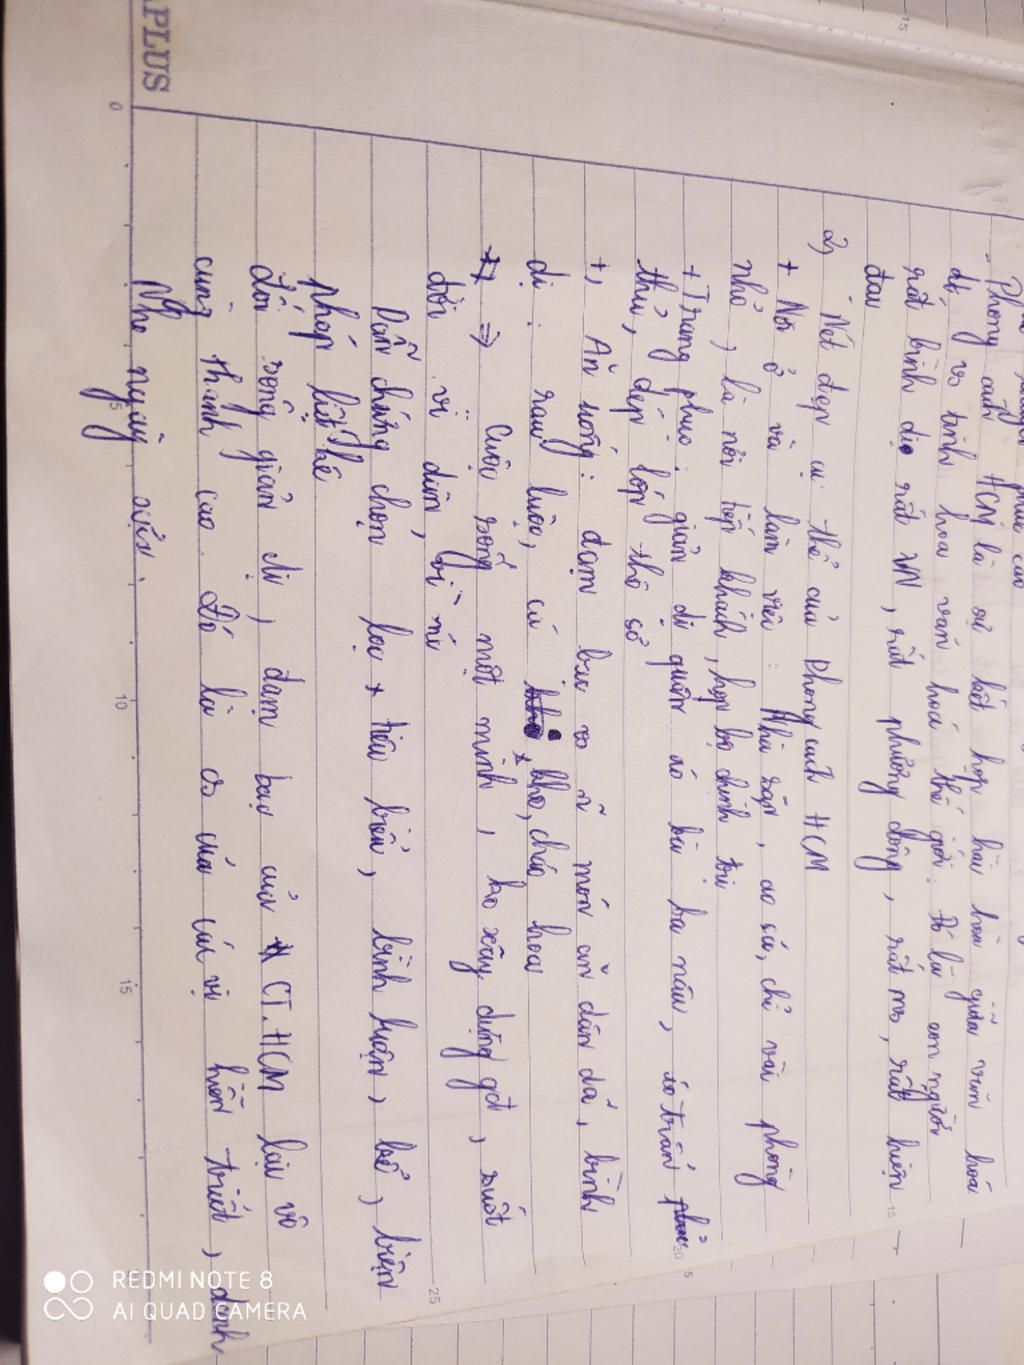 phức cao
- Phong cách HCM là sự kết hợp hài hòa giữa văn hoá
dt vs tinh hoa văn hoá thế giới. Đó là con người
rất bình dị rất VN, rất phương đông, rất ms, rất hiện
đại
2) Nét đẹp cụ thể của Phong cách HCM
+ Nơi ở và làm việc: Nhà sàn, ao cá, chỉ vài phòng
nhỏ, là nơi tiếp khách, họp bộ chính trị
+ Trang phục: giản dị quần áo bà ba nâu, áo trấn
thủ, dép lốp thô sơ
+, Ăn uống: đạm bạc vs n~ món ăn dân dã, bình
dị: rau luộc, cá kho, cháo hoa
=> Cuộc sống một mình, ko xây dựng gđ, suốt
đời vì dân, vì nc
Dẫn chứng chọn lọc, tiêu biểu, bình luận, kể, biện
pháp liệt kê
Lối sống giản dị, đạm bạc của CT.HCM lại vô
cùng thanh cao. Đó là cs của các vị hiền triết, danh
Nho ngày xưa.
APLUS
0
5
10
15
15
15
20
25
5
REDMI NOTE 8
AI QUAD CAMERA